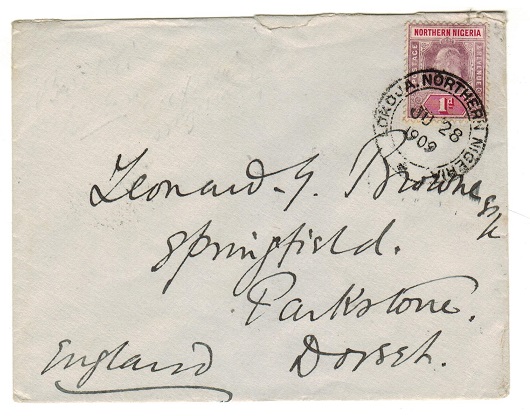 NORTHERN NIGERIA
POSTAGE
REVENUE
1d
LOKOJA. NORTHERN NIGERIA
JU 28
1909
Leonard. G. Browne
Esq
Springfield.
Parkstone.
England
Dorset.